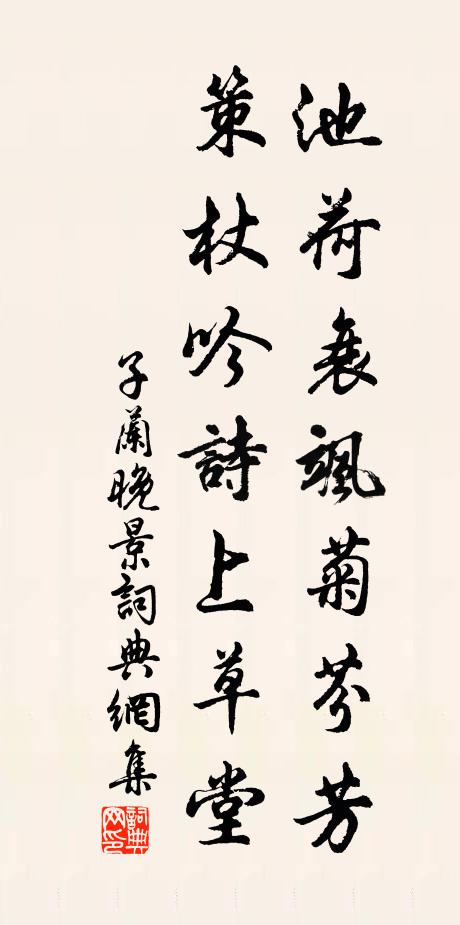 池荷衰颯菊芬芳
策杖吟詩上草堂
子蘭晚景詞典網集
詞典網印